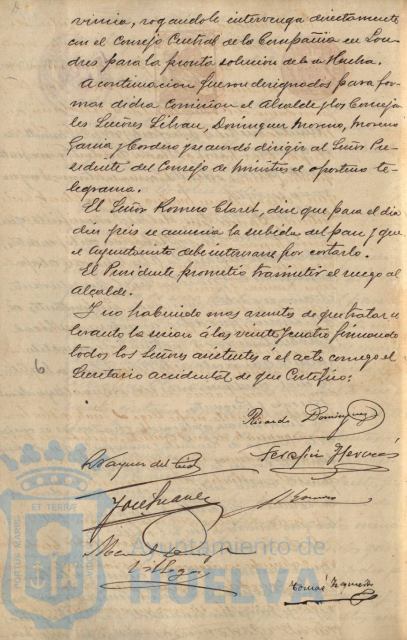 vincia, rogandole intervenga directamente
con el Consejo Central de la Compañia en Lon-
dres para la pronta solucion de la de Huelva.
A continuacion fueron designados para for-
mar dicha Comision el Alcalde y los Conceja-
les Señores Lihau, Dominguez Moreno, Moreno
Garcia y Cordero y se acordó dirigir al Señor Pre-
sidente del Consejo de Ministros el oportuno te-
legrama.
El Señor Romero Claret, dice que para el dia
diez y seis se anuncia la subida del pan y que
el Ayuntamiento debe interesarse por cortarlo.
El Presidente prometió trasmitir el ruego al
Alcalde.
Y no habiendo mas asuntos de que tratar se
levantó la sesion á las veinte y cuatro firmando
todos los Señores asistentes á el acto conmigo el
Secretario accidental de que Certifico:
6
Ricardo Dominguez
Vazquez del
José Suarez
Tomás
PORTUS MARIS
ET TERRAE
Ayuntamiento de
HUELVA